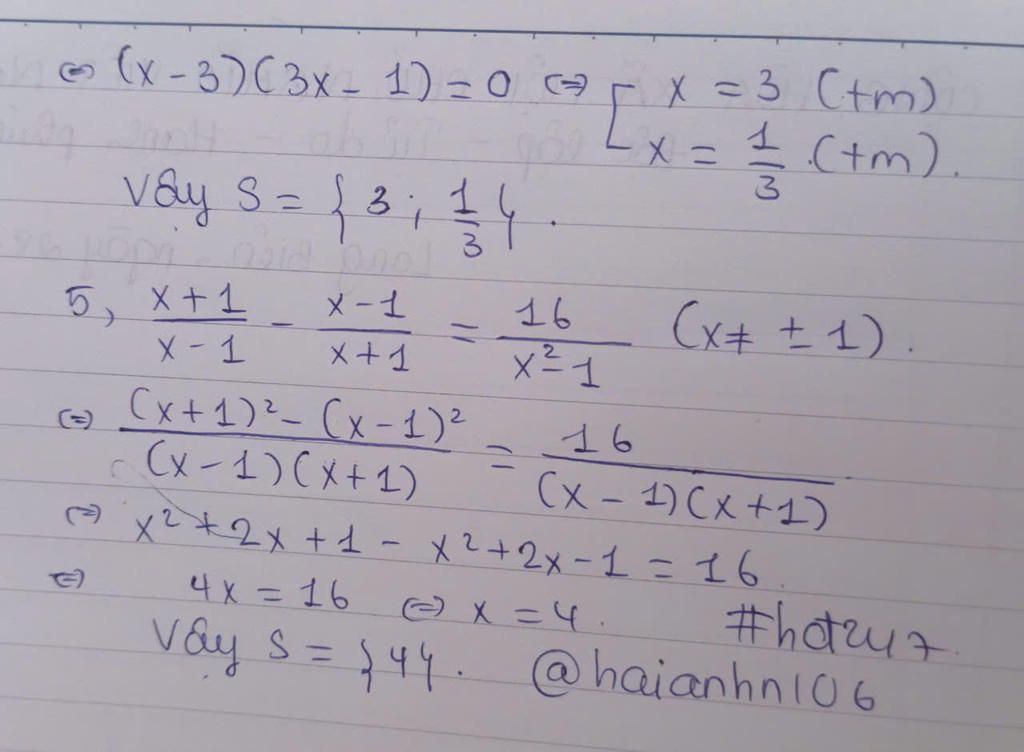 ⇔ (x - 3)(3x - 1) = 0 ⇔ [ x = 3 (tm)
x = 1/3 .(tm).
Vậy S = { 3 ; 1/3 }.
5, (x+1)/(x-1) - (x-1)/(x+1) = 16/(x²-1) (x ≠ ± 1).
⇔ ((x+1)² - (x-1)²)/((x-1)(x+1)) = 16/((x-1)(x+1))
⇔ x² + 2x + 1 - x² + 2x - 1 = 16.
⇔ 4x = 16 ⇔ x = 4.
Vậy S = {4}.
#hdt247.
@haianhn106